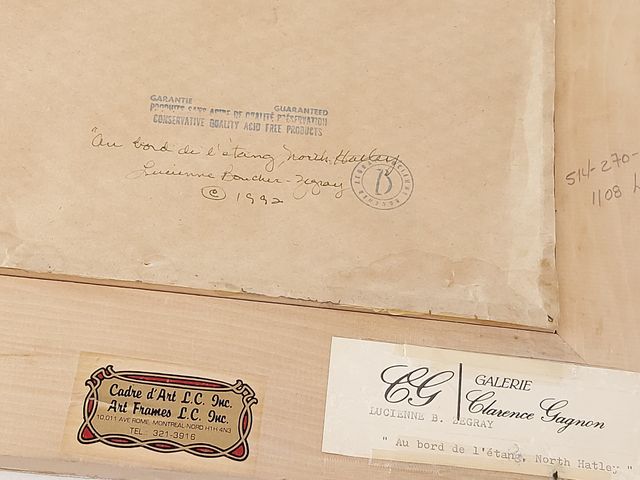 GARANTIE GUARANTEED
PRODUITS SANS ACIDE DE QUALITÉ PRÉSERVATION
CONSERVATIVE QUALITY ACID FREE PRODUCTS
"Au bord de l'étang North Hatley
Lucienne Boucher-Zegray
© 1992
B
514-270-
1108
Cadre d'Art L.C. Inc.
Art Frames L.C. Inc.
10,011 AVE ROME, MONTREAL-NORD H1H 4N3
TEL.: 321-3916
CG GALERIE
Clarence Gagnon
LUCIENNE B. ZEGRAY
" Au bord de l'étang, North Hatley "